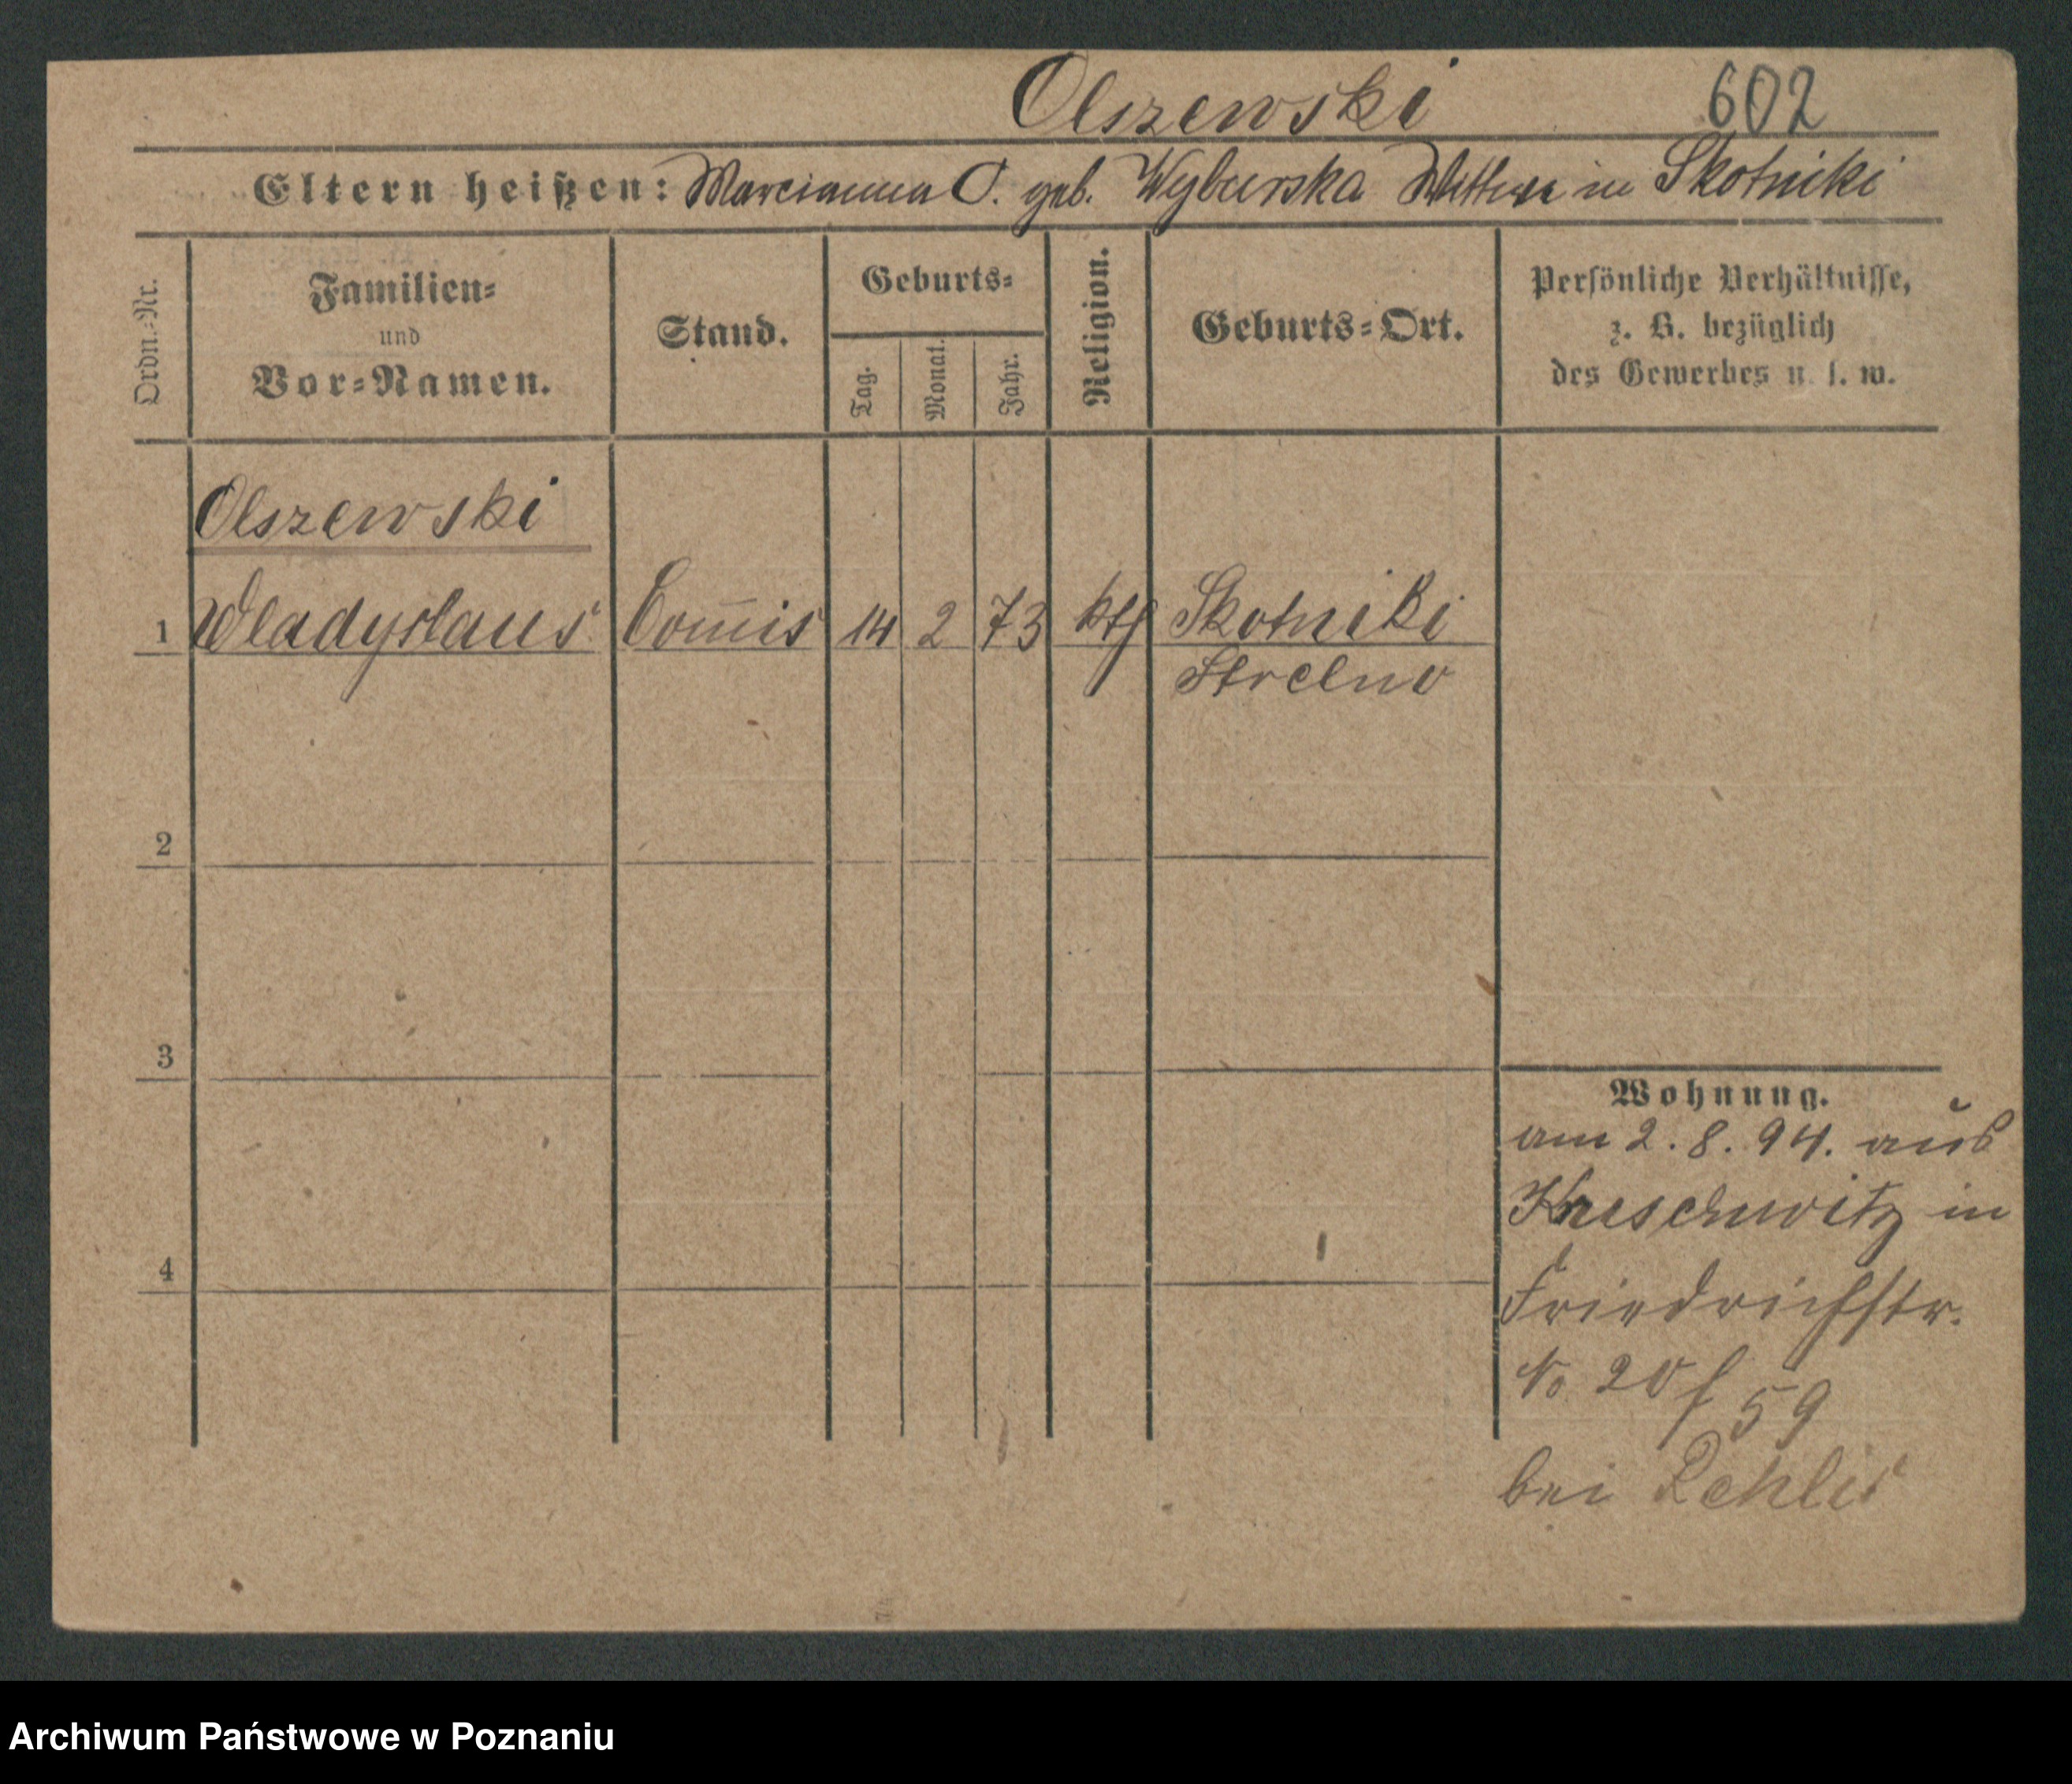 Olszewski 602
Eltern heißen: Marcianna O. geb. Wyburska Wittwe in Skotniki
Ordn.-Nr.
Familien-
und
Vor-Namen.
Stand.
Geburts-
Tag.
Monat.
Jahr.
Religion.
Geburts-Ort.
Persönliche Verhältnisse,
z. B. bezüglich
des Gewerbes u. s. w.
Olszewski
1 Wladyslaus Com̄is 14 2 73 kth Skotniki
Strelno
2
3
4
Wohnung.
am 2. 8. 94. aus
Kruschwitz in
Friedrichstr.
No 20 / 59
bei
Archiwum Państwowe w Poznaniu